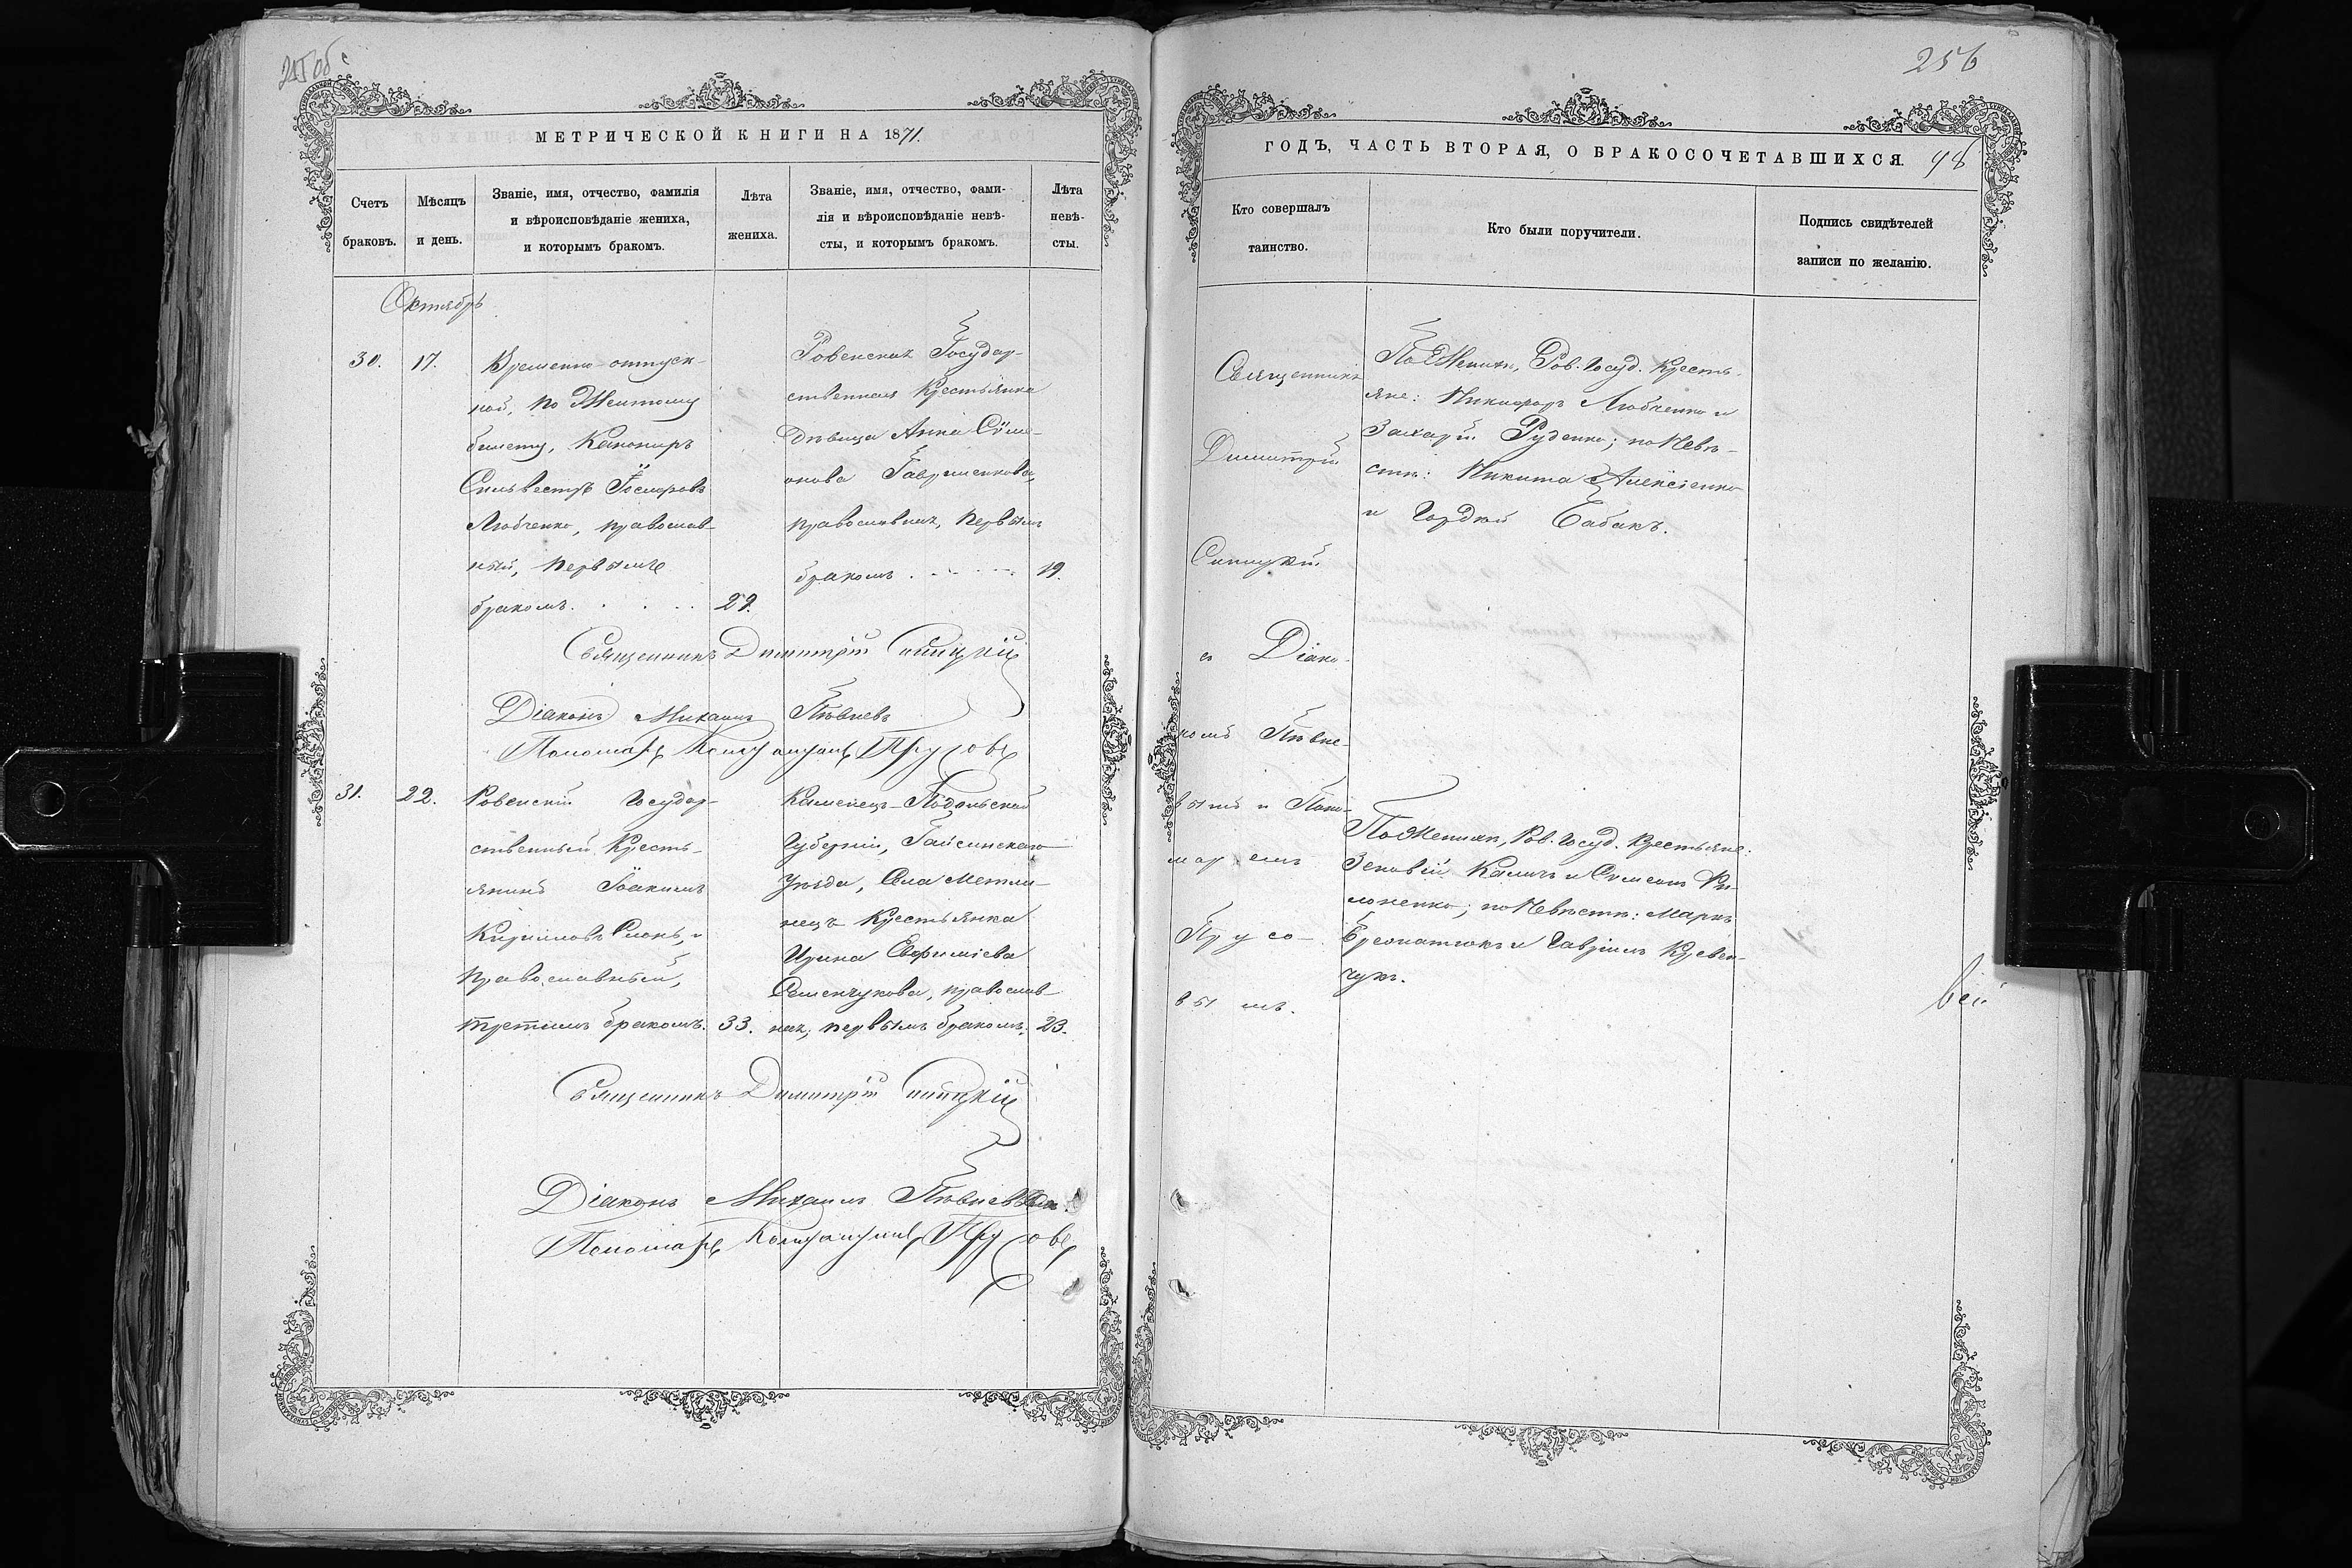 255 об
МЕТРИЧЕСКОЙ КНИГИ НА 1871.
Счетъ браковъ.
Мѣсяцъ и день.
Званіе, имя, отчество, фамилія
и вѣроисповѣданіе жениха,
и которымъ бракомъ.
Лѣта
жениха.
Званіе, имя, отчество, фами-
лія и вѣроисповѣданіе невѣ-
сты, и которымъ бракомъ.
Лѣта
невѣ-
сты.
Октябрь
30. 17.
Временно-отпуск-
ной, по Желтому
билету, Канониръ
Сильвестръ
Любченко, православ-
ный, первымъ
бракомъ. . . . . 29.
Ровенская Государ-
ственная Крестьянка
Дѣвица Анна Сѵме-
онова Гавриленкова,
православная, первымъ
бракомъ . . . . . 19.
Священникъ Димитрій Синицкій
Діаконъ Михаилъ Пѣвневъ
Пономарь Константинъ Прусовъ
31. 22.
Ровенскій Государ-
ственный Кресть-
янинъ Іоакимъ
Кирилловъ
православный,
третьимъ бракомъ. 33.
Каменецъ-Подольской
Губерніи, Гайсинскаго
Уѣзда, Села Метли-
нецъ Крестьянка
Ирина Евфиміева
Семенчукова, православ-
ная, первымъ бракомъ. 23.
Священникъ Димитрій Синицкій
Діаконъ Михаилъ Пѣвневъ
Пономарь Константинъ Прусовъ
256
ГОДЪ, ЧАСТЬ ВТОРАЯ, О БРАКОСОЧЕТАВШИХСЯ. 98
Кто совершалъ
таинство.
Кто были поручители.
Подпись свидѣтелей
записи по желанію.
Священникъ
Димитрій
Синицкій
съ Діако-
номъ Пѣвне-
вымъ и Поно-
маремъ
Прусо-
вымъ.
По Женихѣ, Ров. Госуд. Кресть-
яне: Никифоръ Любченко и
Захарій Руденко; по Невѣ-
стѣ: Никита Алексіенко
и Гордѣй Бабакъ.
По Женихѣ, Ров. Госуд. Крестьяне:
Зеновій Каличъ и Сѵмеонъ Фи-
лоненко; по Невѣстѣ: Маркъ
и Гавріилъ Кревен-
чукъ.